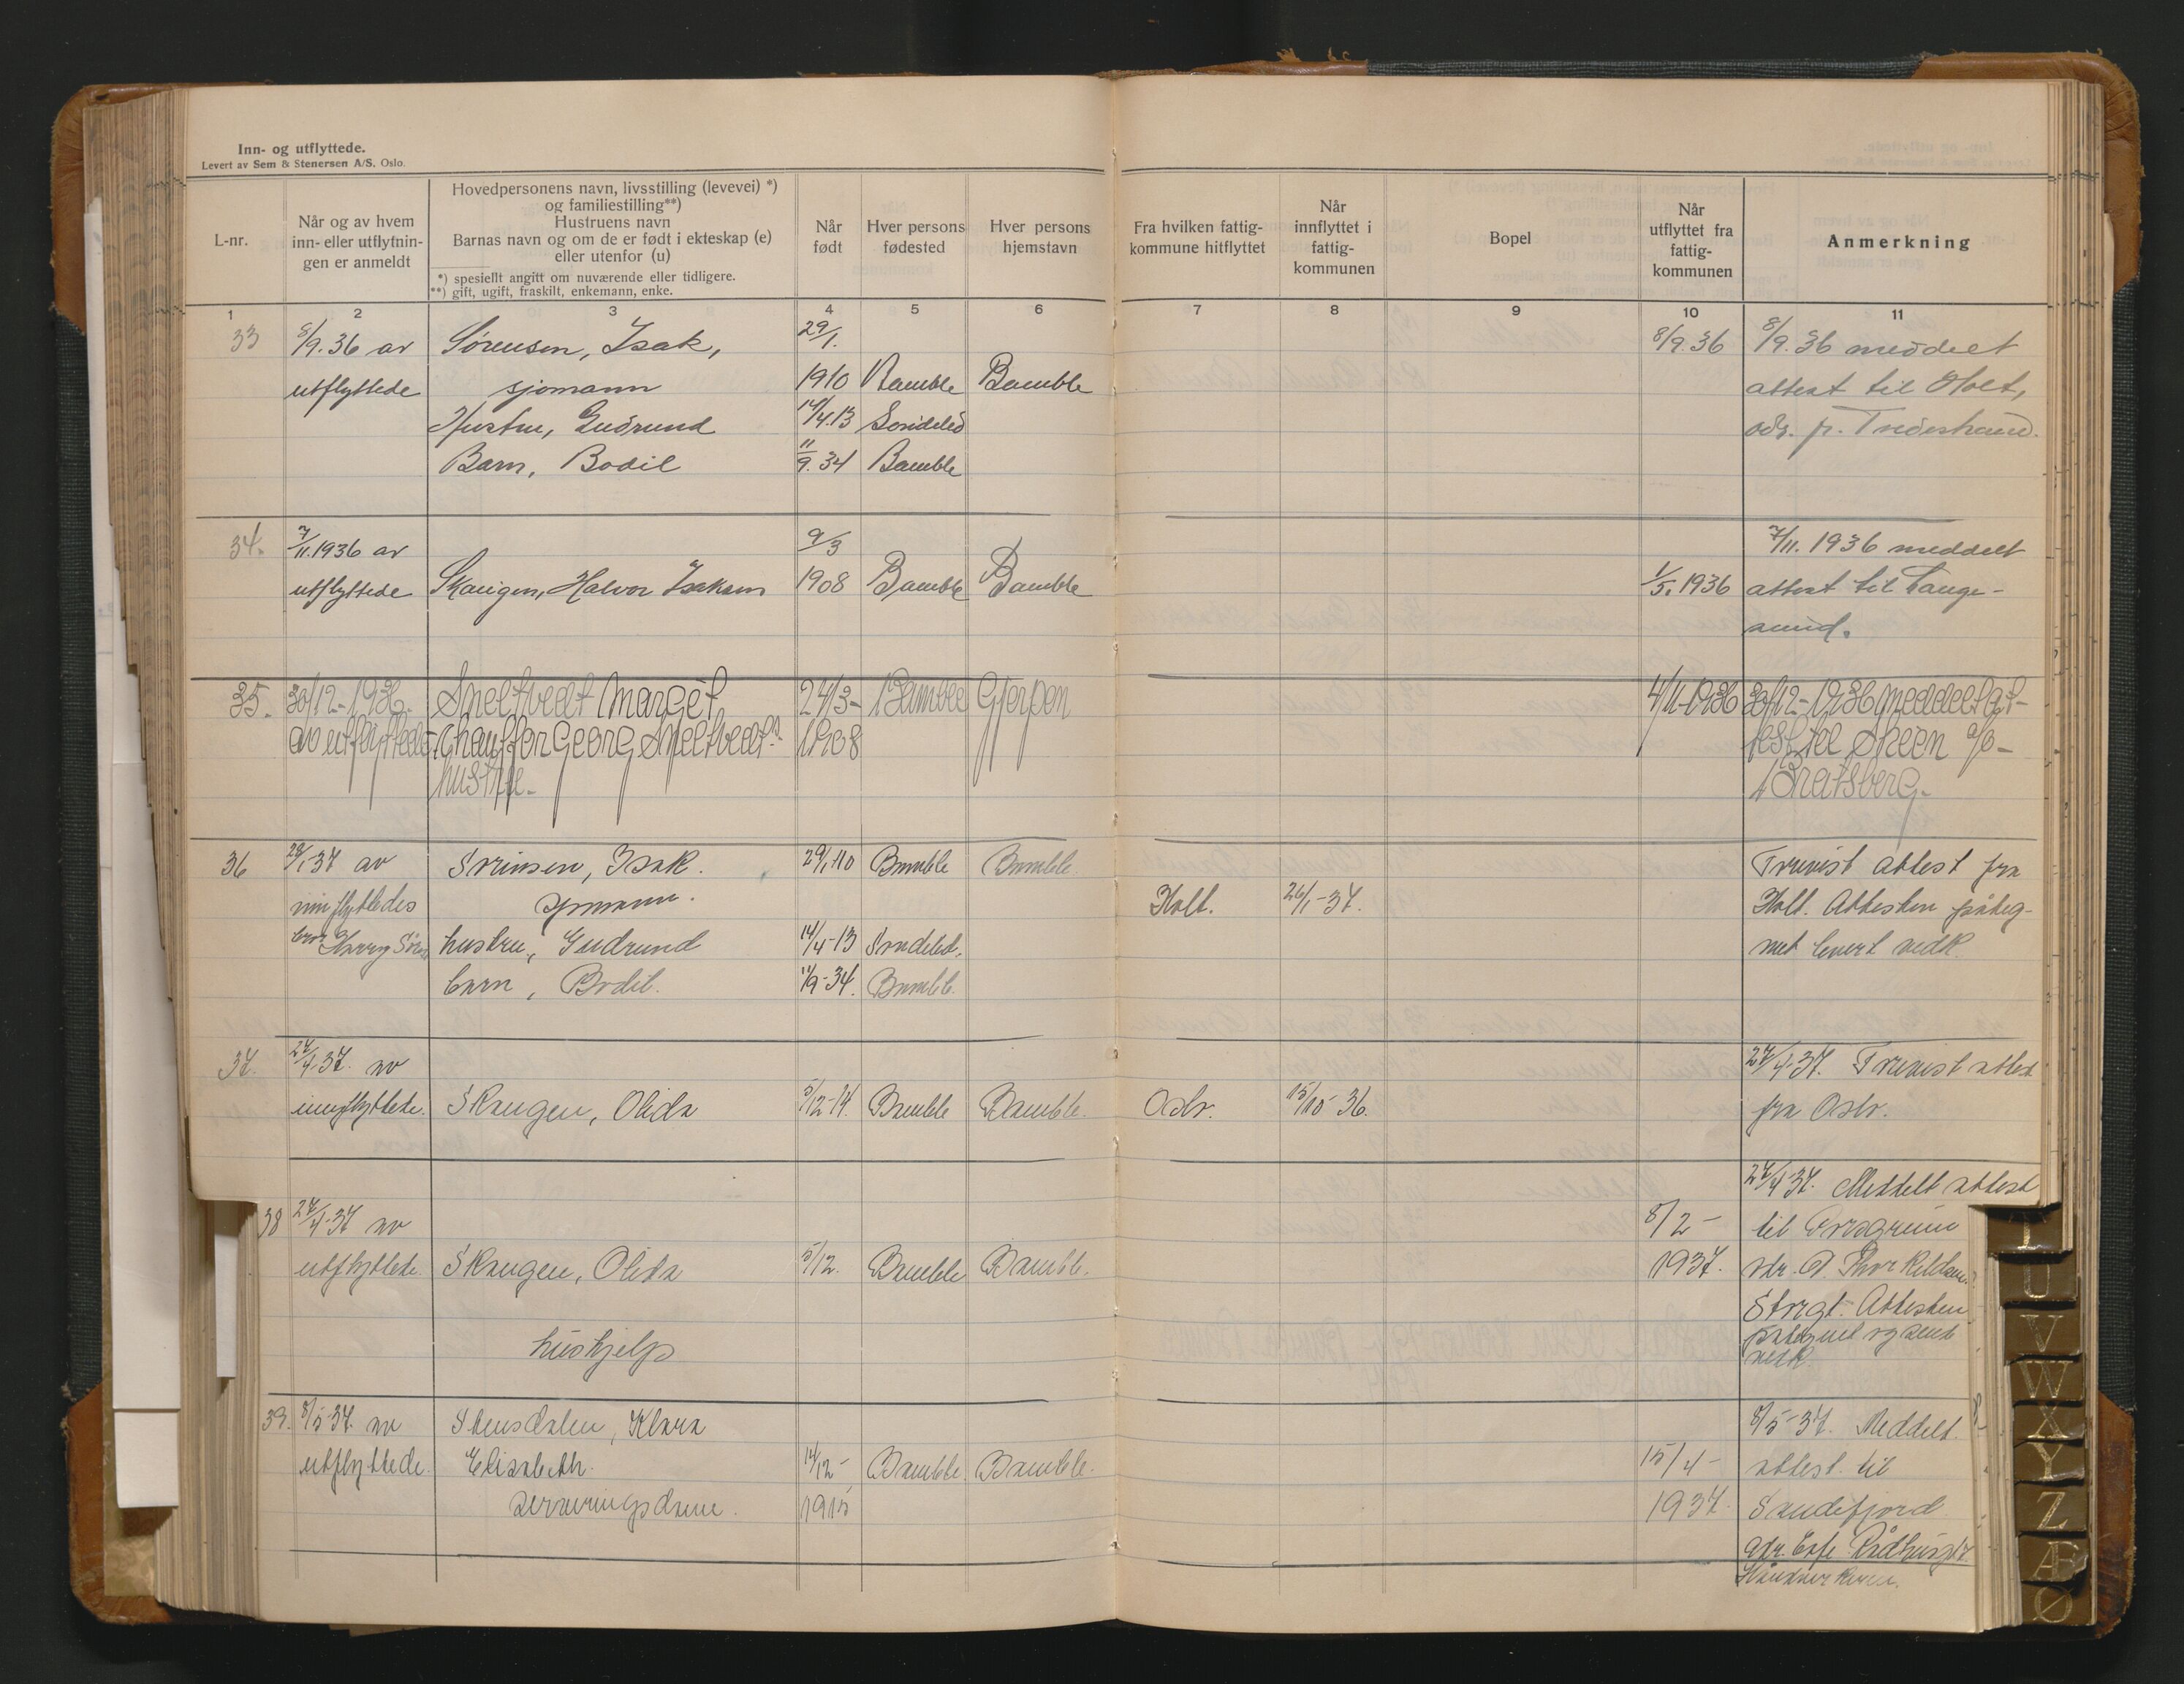 Inn- og utflyttede.
Levert av Sem & Stenersen A/S. Oslo.
L-nr.
Når og av hvem
inn- eller utflytnin-
gen er anmeldt
Hovedpersonens navn, livsstilling (levevei) *)
og familiestilling**)
Hustruens navn
Barnas navn og om de er født i ekteskap (e)
eller utenfor (u)
*) spesiellt angitt om nuværende eller tidligere.
**) gift, ugift, fraskilt, enkemann, enke.
Når
født
Hver persons
fødested
Hver persons
hjemstavn
Fra hvilken fattig-
kommune hitflyttet
Når
innflyttet i
fattig-
kommunen
Bopel
Når
utflyttet fra
fattig-
kommunen
Anmerkning
1 2 3 4 5 6 7 8 9 10 11
33 8/9.36 av Sørensen, Isak, 29/1. 8/9.36 8/9.36 meddelt
utflyttede sjømann 1910 Bamble Bamble attest til Holt,
Hustru, Gudrund 14/4.13 Søndeled adr. pr. Tvedestrand.
Barn, Bodil 11/9.34 Bamble
34. 7/11.1936 av 9/3 7/11.1936 meddelt
utflyttede Skaugen, Halvor Isaksen 1908 Bamble Bamble 1/5.1936 attest til Lange-
sund.
35. 30/12-1936. Smeltvedt Marget 24/3- Bamble Gjerpen 4/11-1936 30/12-1936 meddelt at-
av utflyttede. Chauffør Georg Smeltvedts 1908 test til Skien a/o-
hustru- Bratsberg.
36 28/1-37 av Sørensen, Isak. 29/1-10 Bamble Bamble Forevist attest fra
innflyttedes sjømann. Holt. 26/1-37. Holt. Attesten påteg-
bror Harry Søren hustru, Gudrund 14/4-13 Søndeled. net levert vedk.
barn, Bodil. 11/9-34. Bamble.
37. 27/4-37. av 27/4-37. Forevist attest
innflyttede. Skaugen, Olida 5/12-14. Bamble Bamble. Oslo. 15/10-36. fra Oslo.
27/4-37. Meddelt attest
38 27/4-37 av 8/2- til Porsgrunn
utflyttede. Skaugen, Olida 5/12. Bamble Bamble. 1937. adr. A. Thorkildsen.
Storgt. Attesten
hushjelp påtegnet og sendt
vedk.
39. 8/5-37. av Stensdalen, Klara 8/5-37. Meddelt
utflyttede. Elisabeth. 14/12- Bamble. Bamble. 15/4- attest til
serveringsdame. 1915 1937. Sandefjord
adr. Cafe Rådhusgt.
T
U
V
W
X
Y
Z
Æ
Ø